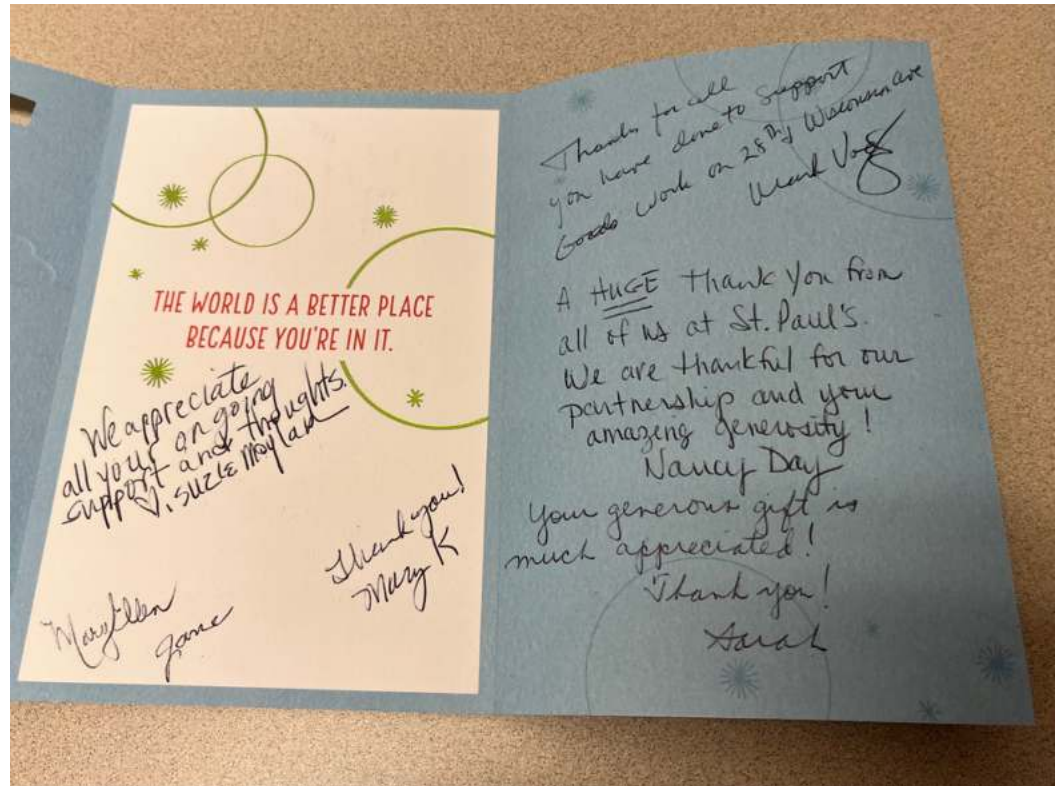 THE WORLD IS A BETTER PLACE
BECAUSE YOU'RE IN IT.
We appreciate
all your on going
support and thoughts.
♡, Suzie Moylan
Thank you!
Mary K
MaryEllen
Jane
Thanks for all
you have done to support
Gods work on 28th & Wisconsin Ave
Mark
A HUGE Thank You from
all of us at St. Paul's.
We are thankful for our
partnership and your
amazing generosity!
Nancy Day
Your generous gift is
much appreciated!
Thank you!
Sarah